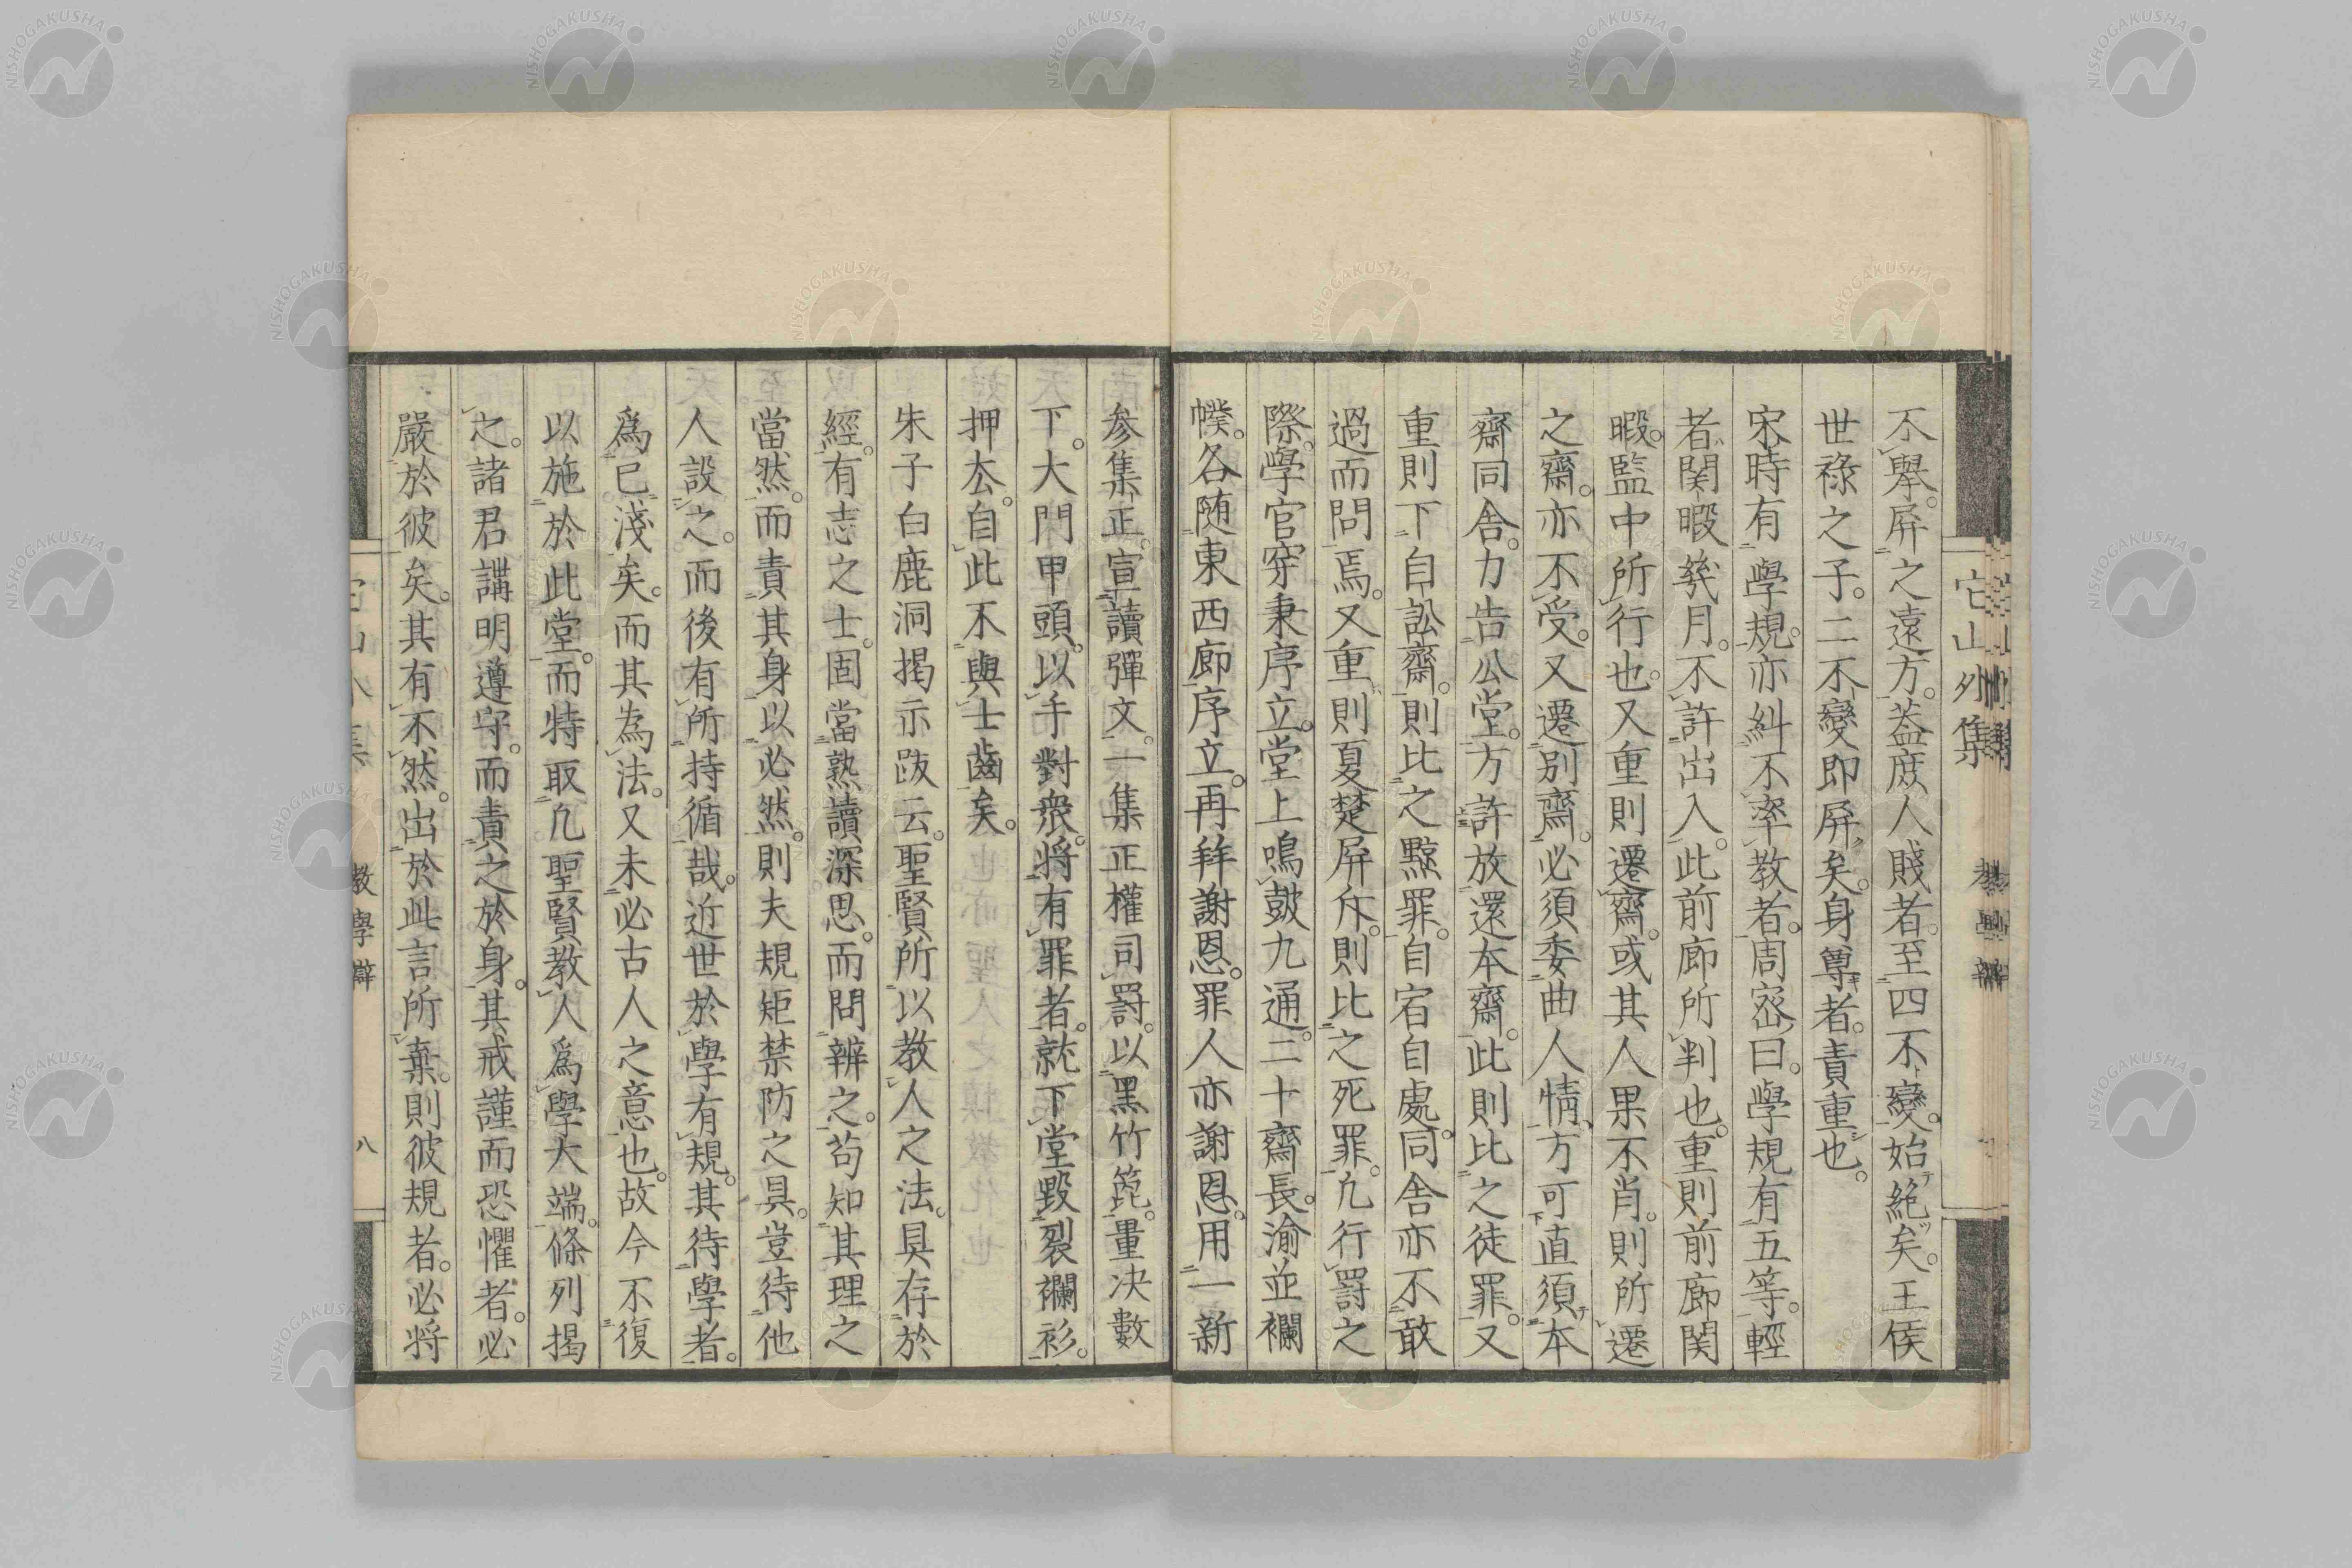 不擧。屏之遠方。蓋庶人賤者。至四不變。始絕矣。王侯
世祿之子。二不變即屏矣。身尊者。責重也。
宋時有學規。亦糾不率教者。周密曰。學規有五等。輕
者関暇幾月。不許出入。此前廊所判也。重則前廊関
暇。監中所行也。又重則遷齋。或其人果不肖。則所遷
之齋。亦不受。又遷別齋。必須委曲人情。方可直須本
齋同舎。力告公堂。方許放還本齋。此則比之徒罪。又
重則下自訟齋。則比之黥罪。自宿自處。同舎亦不敢
過而問焉。又重則夏楚屏斥。則比之死罪。凢行罰之
際。學官穿秉序立。堂上鳴鼓九通。二十齋長。渝並襴
幞。各随東西廊序立。再拜謝恩。罪人亦謝恩。用一新
参集正。宣讀彈文。一集正權司罰。以黑竹箆。量决數
下。大門甲頭。以手對衆。將有罪者。就下堂毀裂襴衫。
押去。自此不與士齒矣。
朱子白鹿洞揭示跋云。聖賢所以教人之法。具存於
經。有志之士。固當熟讀深思。而問辨之。苟知其理之
當然。而責其身以必然。則夫規矩禁防之具。豈待他
人設之。而後有所持循哉。近世於學有規。其待學者。
爲已淺矣。而其為法。又未必古人之意也。故今不復
以施於此堂。而特取凢聖賢教人爲學大端。條列揭
之。諸君講明遵守。而責之於身。其戒謹而恐懼者。必
嚴於彼矣。其有不然。出於此言所棄。則彼規者。必将
它山列集
教學辯
八
NISHOGAKUSHA